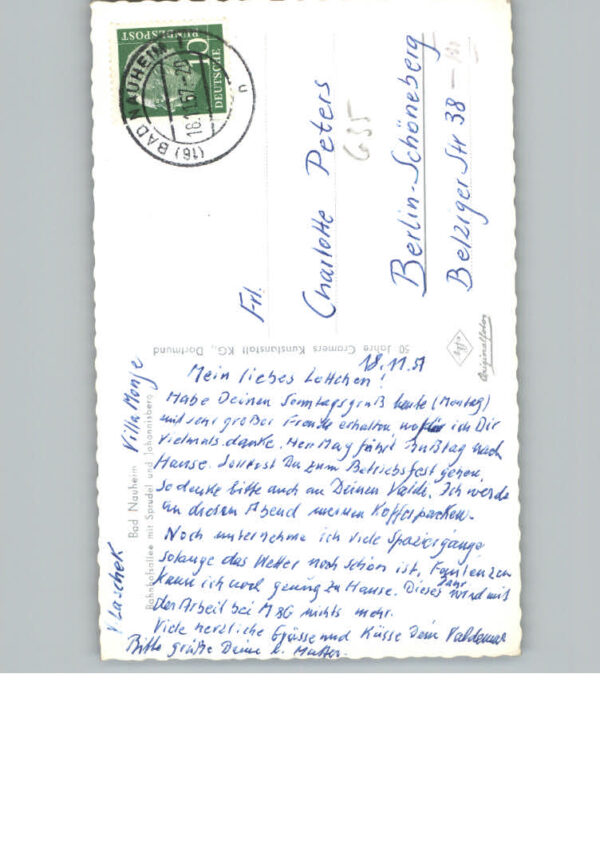 DEUTSCHE
BUNDESPOST
10
(16) BAD NAUHEIM
18.11.57
Frl.
Charlotte Peters
Berlin-Schöneberg
Belziger Str 38
635
50 Jahre Cramers Kunstanstalt KG., Dortmund
Originalfoto
Bad Nauheim
Bahnhofsallee mit Sprudel und Johannisberg
Villa Monje
18.11.57
Mein liebes Lottchen!
Habe Deinen Sonntagsgruß heute (Montag)
mit sehr großer Freude erhalten wofür ich Dir
vielmals danke. Herr May fährt Bußtag nach
Hause. Solltest Du zum Betriebsfest gehen,
so denke bitte auch an Deinen Valdi. Ich werde
an diesem Abend meinen Koffer packen.
Noch unternehme ich viele Spaziergänge
solange das Wetter noch schön ist,
kann ich noch genug zu Hause. Dieses Jahr wird mit
der Arbeit bei nichts mehr.
Viele herzliche Grüsse und Küsse Dein Valdemar
Bitte grüße Deine l. Mutter.